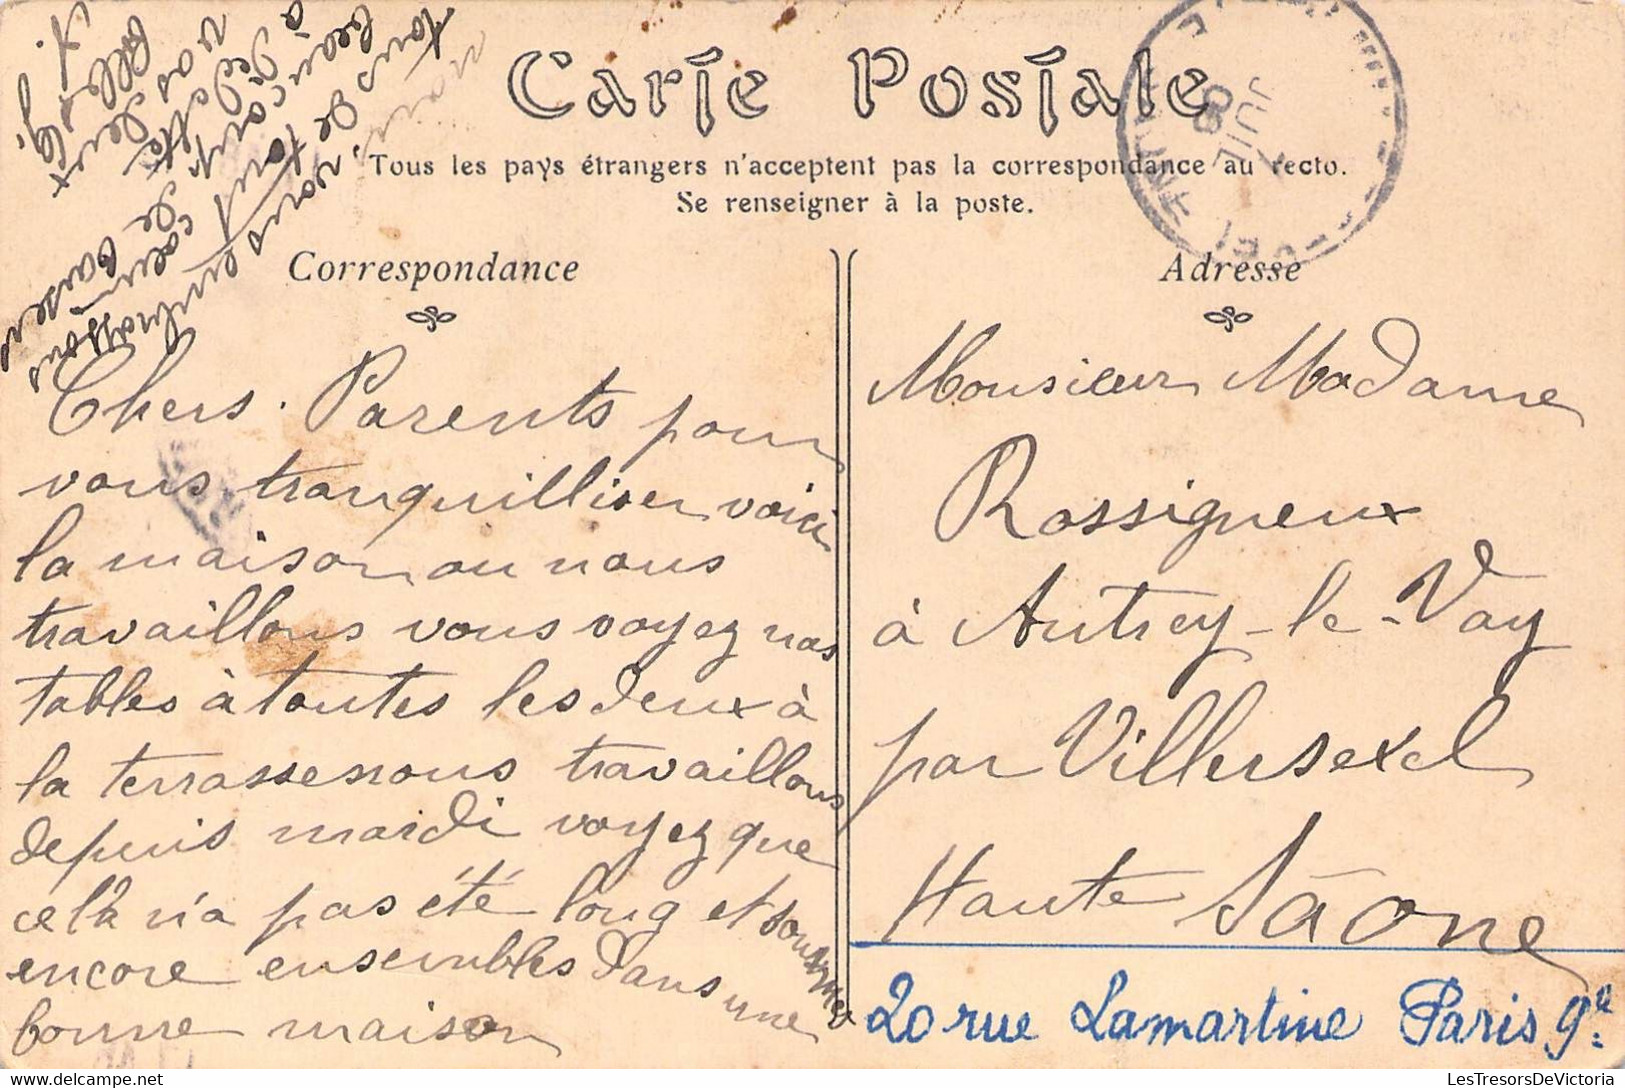 Carte Postale
Tous les pays étrangers n'acceptent pas la correspondance au recto.
Se renseigner à la poste.
Correspondance
Chers Parents pour
vous tranquilliser voici
la maison ou nous
travaillons vous voyez nos
tables à toutes les deux à
la terrasse nous travaillons
depuis mardi voyez que
celà n'a pas été long et sommes
encore ensembles dans une
bonne maison
nous vous embrassons
tous de tout coeur
beaucoup de baisers
à Dédette
vos deux
filles
Adresse
JUIL
08
Monsieur Madame
Rossigneux
à Autrey-le-Vay
par Villersexel
Haute Sāone
20 rue Lamartine Paris 9e
LesTresorsDeVictoria